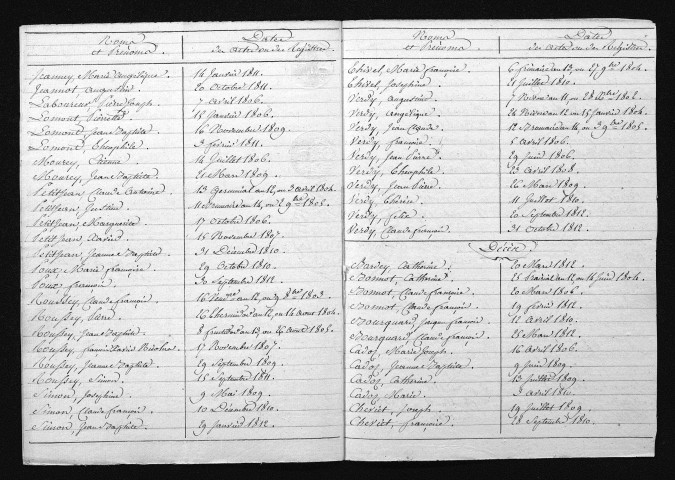 Noms et Prénoms. Dates des actes ou des Registres
Jeanney, Marie Angélique. 14 Janvier 1811.
Jeannot, Augustin. 20 Octobre 1811.
Laboureur, Pierre Joseph. 7 Avril 1806.
Lomont, Pierrette. 15 Janvier 1806.
Lomont, Jean Baptiste. 16 Novembre 1809.
Lomont, Théophile. 3 février 1811.
Mourey, Etienne. 14 Juillet 1806.
Mourey, Jean Baptiste. 21 Mars 1809.
Petitjean, Claude Antoine. 13 Germinal an 12, ou 3 avril 1804.
Petitjean, Justine. 11 Brumaire an 14, ou 2 9bre 1805.
Petitjean, Marguerite. 17 Octobre 1806.
Petitjean, Xavier. 15 Novembre 1807.
Petitjean, Jeanne Baptiste. 31 Décembre 1810.
Poux, Marie françoise. 29 Octobre 1810.
Poux, françois. 30 Septembre 1812.
Roussey, Claude françois. 16 Vend.re an 12, ou 9 8bre 1803.
Roussey, Pierre. 26 Thermidor an 12, ou 14 Aout 1804.
Roussey, Jean Baptiste. 8 fructidor an 13, ou 26 Aout 1805.
Roussey, francois Xavier Nicolas. 17 Novembre 1807.
Roussey, Jean Baptiste. 29 Septembre 1809.
Roussey, Simon. 15 Septembre 1811.
Simon, Josephine. 9 Mai 1809.
Simon, Claude françois. 10 Décembre 1810.
Simon, Jean Baptiste. 29 Janvier 1812.
Noms et Prénoms. Dates des actes ou des Registres.
Thiret, Marie françoise. 6 frimaire an 13, ou 27 9bre 1804.
Thiret, Josephine. 21 Juillet 1810.
Verdy, Augustin. 7 Nivose an 11 ou 28 Xbre 1802.
Verdy, Angélique. 24 Nivose an 12 ou 15 Janvier 1804.
Verdy, Jean Claude. 12 Brumaire an 14 ou 3 9bre 1805.
Verdy, françoise. 5 Avril 1806.
Verdy, Jean Pierre. 29 Juin 1806.
Verdy, Théophile. 23 Avril 1808.
Verdy, Jean Pierre. 26 Mars 1809.
Verdy, Thérèse. 11 Juillet 1810.
Verdy, Felix. 20 Septembre 1812.
Verdy, Claude françois. 31 Octobre 1812.
Décès.
Bardey, Catherine. 20 Mars 1812.
Bonnot, Catherine. 25 Prairial an 12 ou 14 Juin 1804.
Bonnot, Claude françoise. 20 Mars 1806.
Bonnot, Claude françois. 19 février 1812.
Bourquard, Jacques francois. 12 Avril 1810.
Bourquard, Claude françois. 25 Mars 1812.
Cadoz, Marie Joseph. 16 Avril 1806.
Cadoz, Jeanne Baptiste. 9 Juin 1809.
Cadoz, Catherine. 13 Juillet 1809.
Cadoz, Marie. 3 avril 1810.
Theriet, Joseph. 19 Juillet 1809.
Theriet, françoise. 28 Septembre 1810.